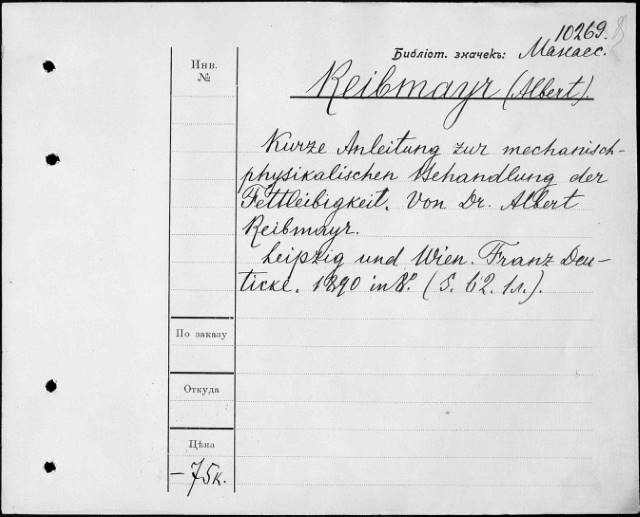 10269.
Библіот. значекъ: Манаес.
Инв.
№
Reibmayr (Albert).
Kurze Anleitung zur mechanisch-
physikalischen Behandlung der
Fettleibigkeit. Von Dr. Albert
Reibmayr.
Leipzig und Wien. Franz Deu-
ticke. 1890 in 8°. (S. 62. 1л.).
По заказу
Откуда
Цѣна
– 75к.